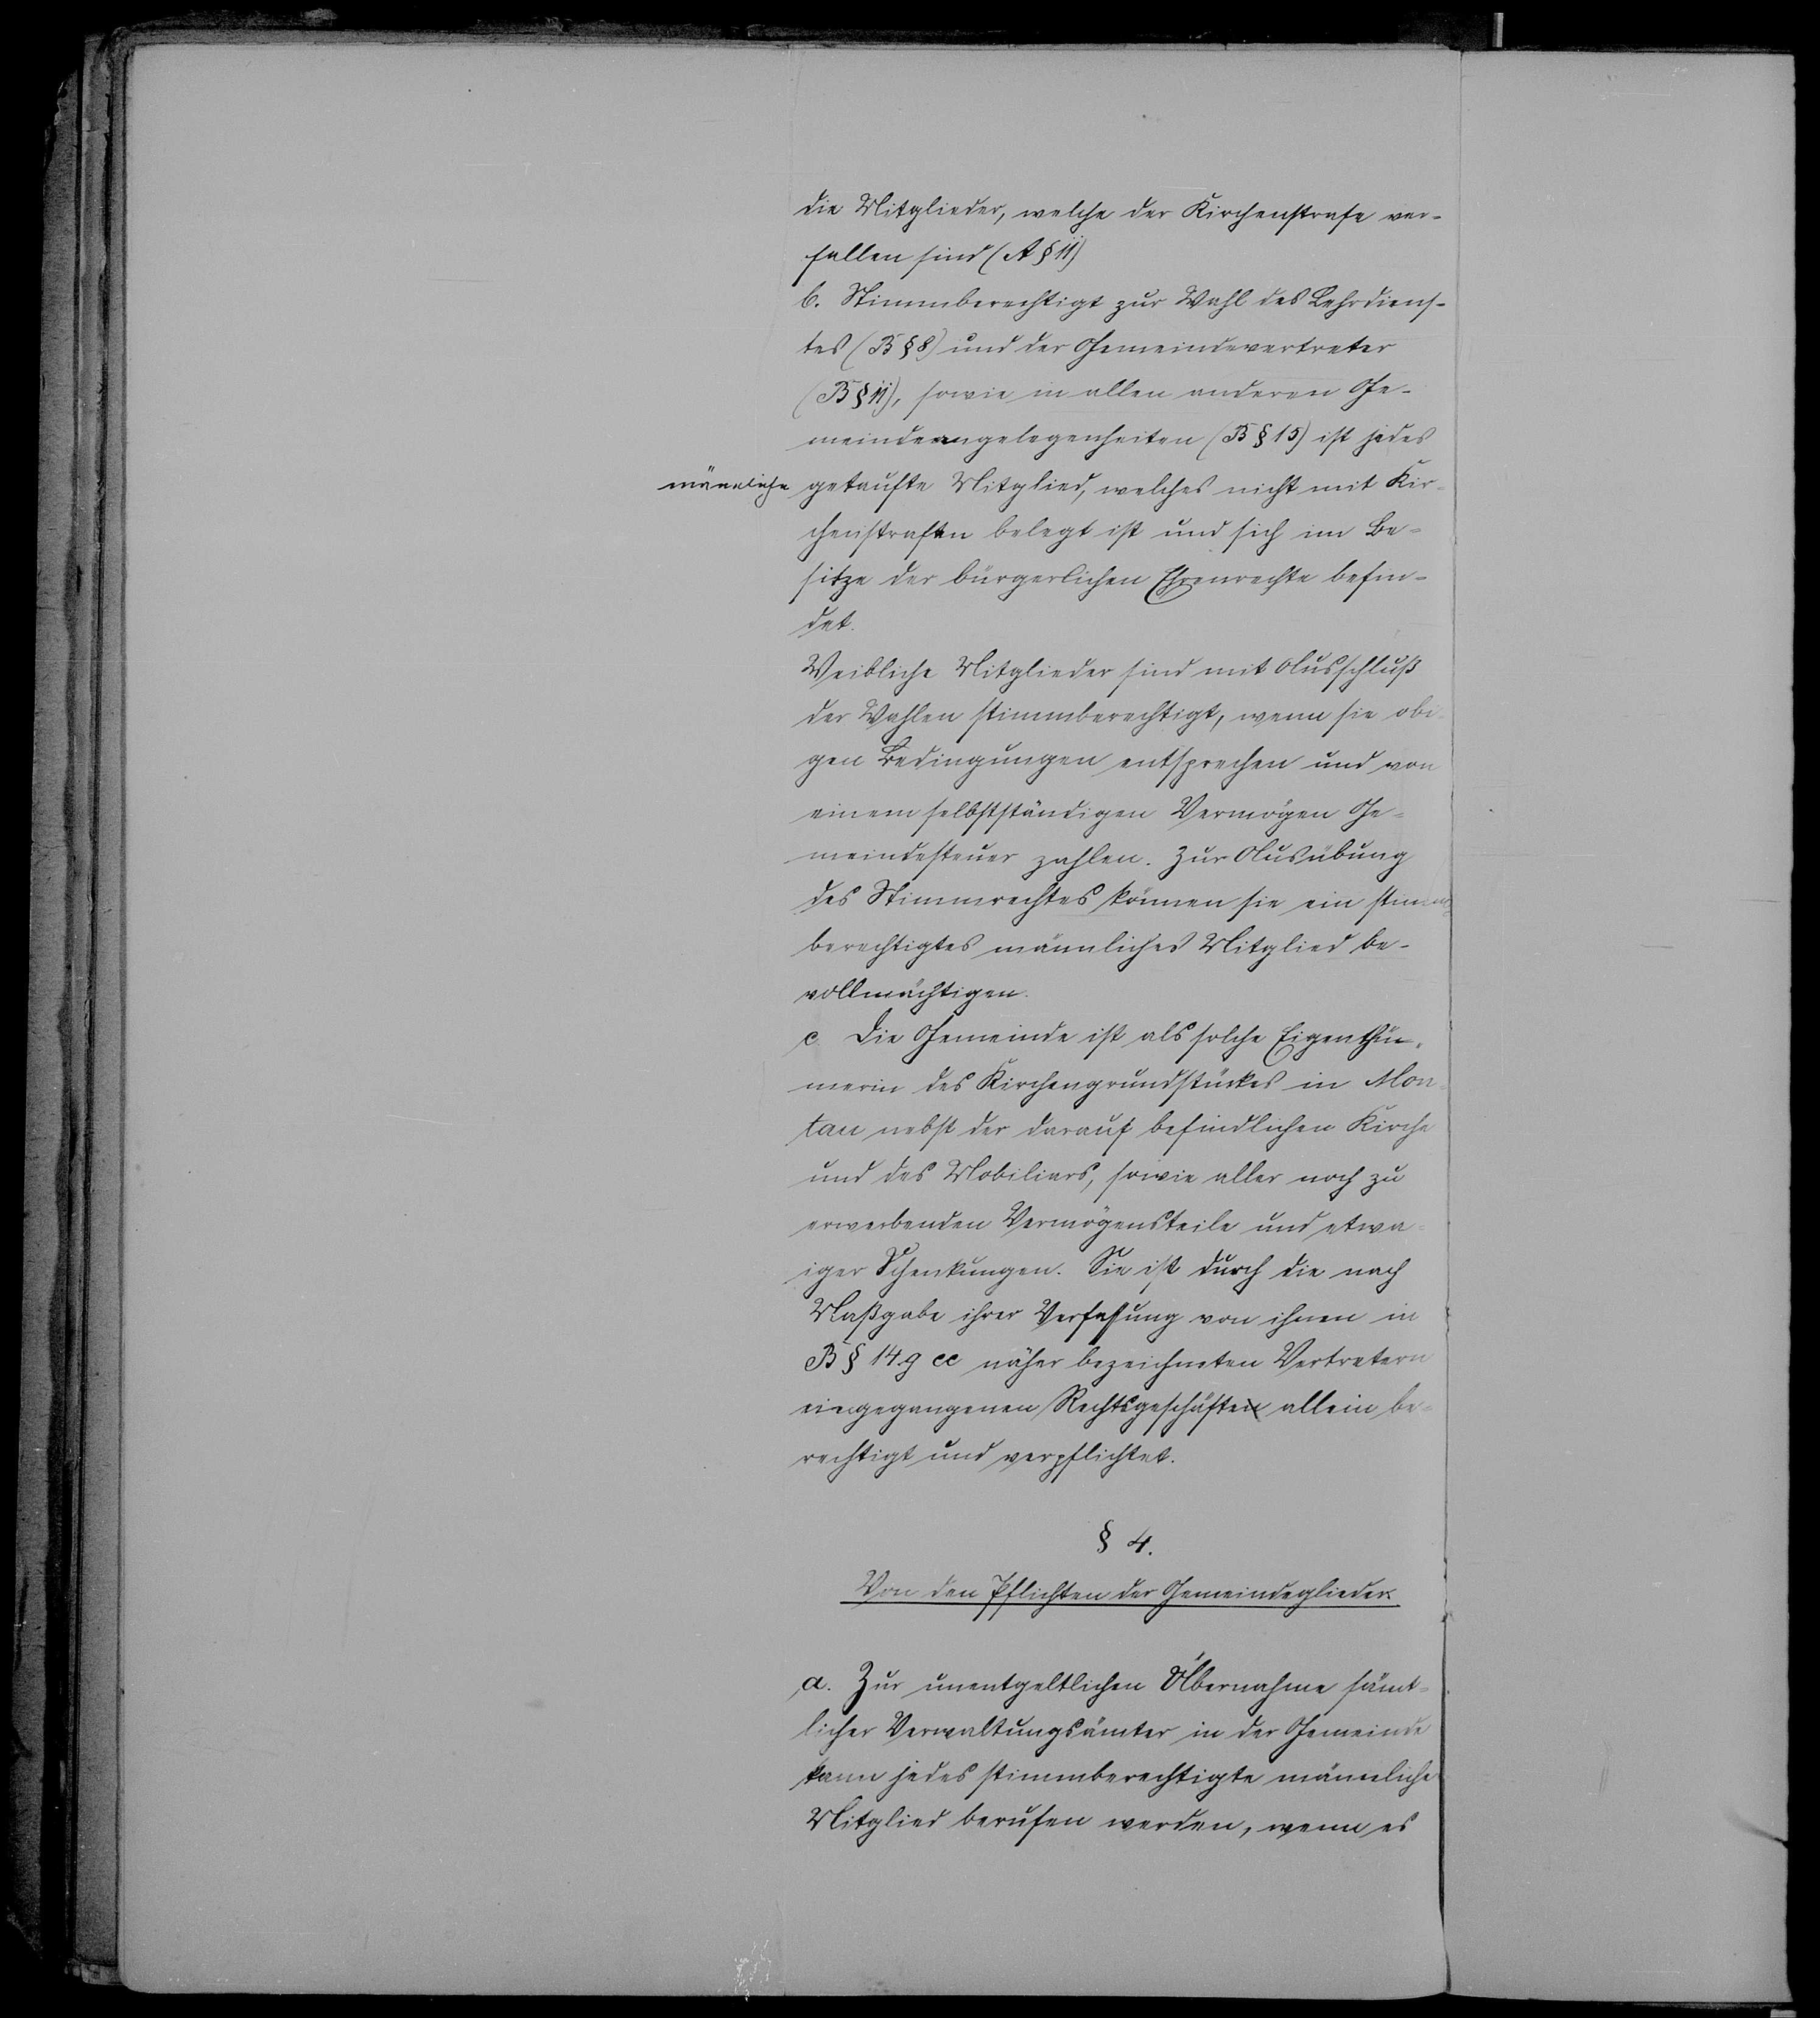 die Mitglieder, welche der Kirchenstrafe ver-
fallen sind (A § 11)
b. Stimmberechtigt zur Wahl des Lehrdiens-
tes (B § 8) und der Gemeindevertreter
(B § 11), sowie in allen anderen Ge-
meindeangelegenheiten (B § 15) ist jedes
männliche getaufte Mitglied, welches nicht mit Kir-
chenstrafen belegt ist und sich im Be-
sitze der bürgerlichen Ehrenrechte befin-
det.
Weibliche Mitglieder sind mit Ausschluß
der Wahlen stimmberechtigt, wenn sie obi-
gen Bedingungen entsprechen und von
einem selbstständigen Vermögen Ge-
meindesteuer zahlen. Zur Ausübung
des Stimmrechtes können sie ein stimm-
berechtigtes männliches Mitglied be-
vollmächtigen.
c. Die Gemeinde ist als solche Eigenthü-
merin des Kirchengrundstückes in Mon-
tau nebst der darauf befindlichen Kirche
und des Mobiliars, sowie aller noch zu
erwerbenden Vermögensteile und etwa-
iger Schenkungen. Sie ist durch die nach
Maßgabe ihrer Verfassung von ihnen in
B § 14 g cc näher bezeichneten Vertretern
eingegangenen Rechtsgeschäfte allein be-
rechtigt und verpflichtet.
§ 4.
Von den Pflichten der Gemeindeglieder.
a. Zur unentgeltlichen Übernahme sämt-
licher Verwaltungsämter in der Gemeinde
kann jedes stimmberechtigte männliche
Mitglied berufen werden, wenn es